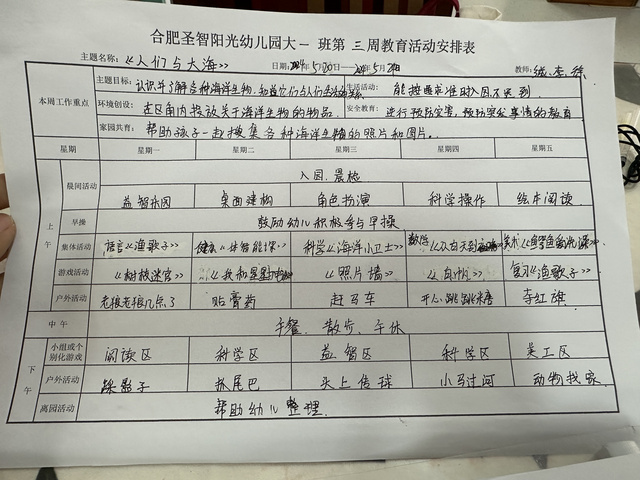 合肥圣智阳光幼儿园大一 班第 三 周教育活动安排表
主题名称:《人们与大海》 日期:2024年5月20日—2024年5月 教师:
本周工作重点
主题目标: 认识并了解各种海洋生物,知道它们与人们 生活活动: 能按要求准时入园不迟到
环境创设: 在区角内投放关于海洋生物的物品. 安全教育: 进行预防灾害,预防突发事情的教育
家园共育: 帮助孩子一起搜集各种海洋生物的照片和图片.
星期 星期一 星期二 星期三 星期四 星期五
上午
晨间活动 入园.晨检
益智休闲 桌面建构 角色扮演 科学操作 绘本阅读
早操 鼓励幼儿积极参与早操
集体活动 语言《渔歌子》 健康《体智能课》 科学《海洋小卫士》 数学 美术
游戏活动 《树根迷宫》 《我和星星打电话》 《照片墙》 《白帆》 复习《渔歌子》
户外活动 老狼老狼几点了 贴膏药 赶马车 开心跳跳 夺红旗
中午 午餐、散步、午休
下午
小组或个别化游戏 阅读区 科学区 益智区 科学区 美工区
户外活动 踩影子 抓尾巴 头上传球 小马过河 动物找家
离园活动 帮助幼儿整理.